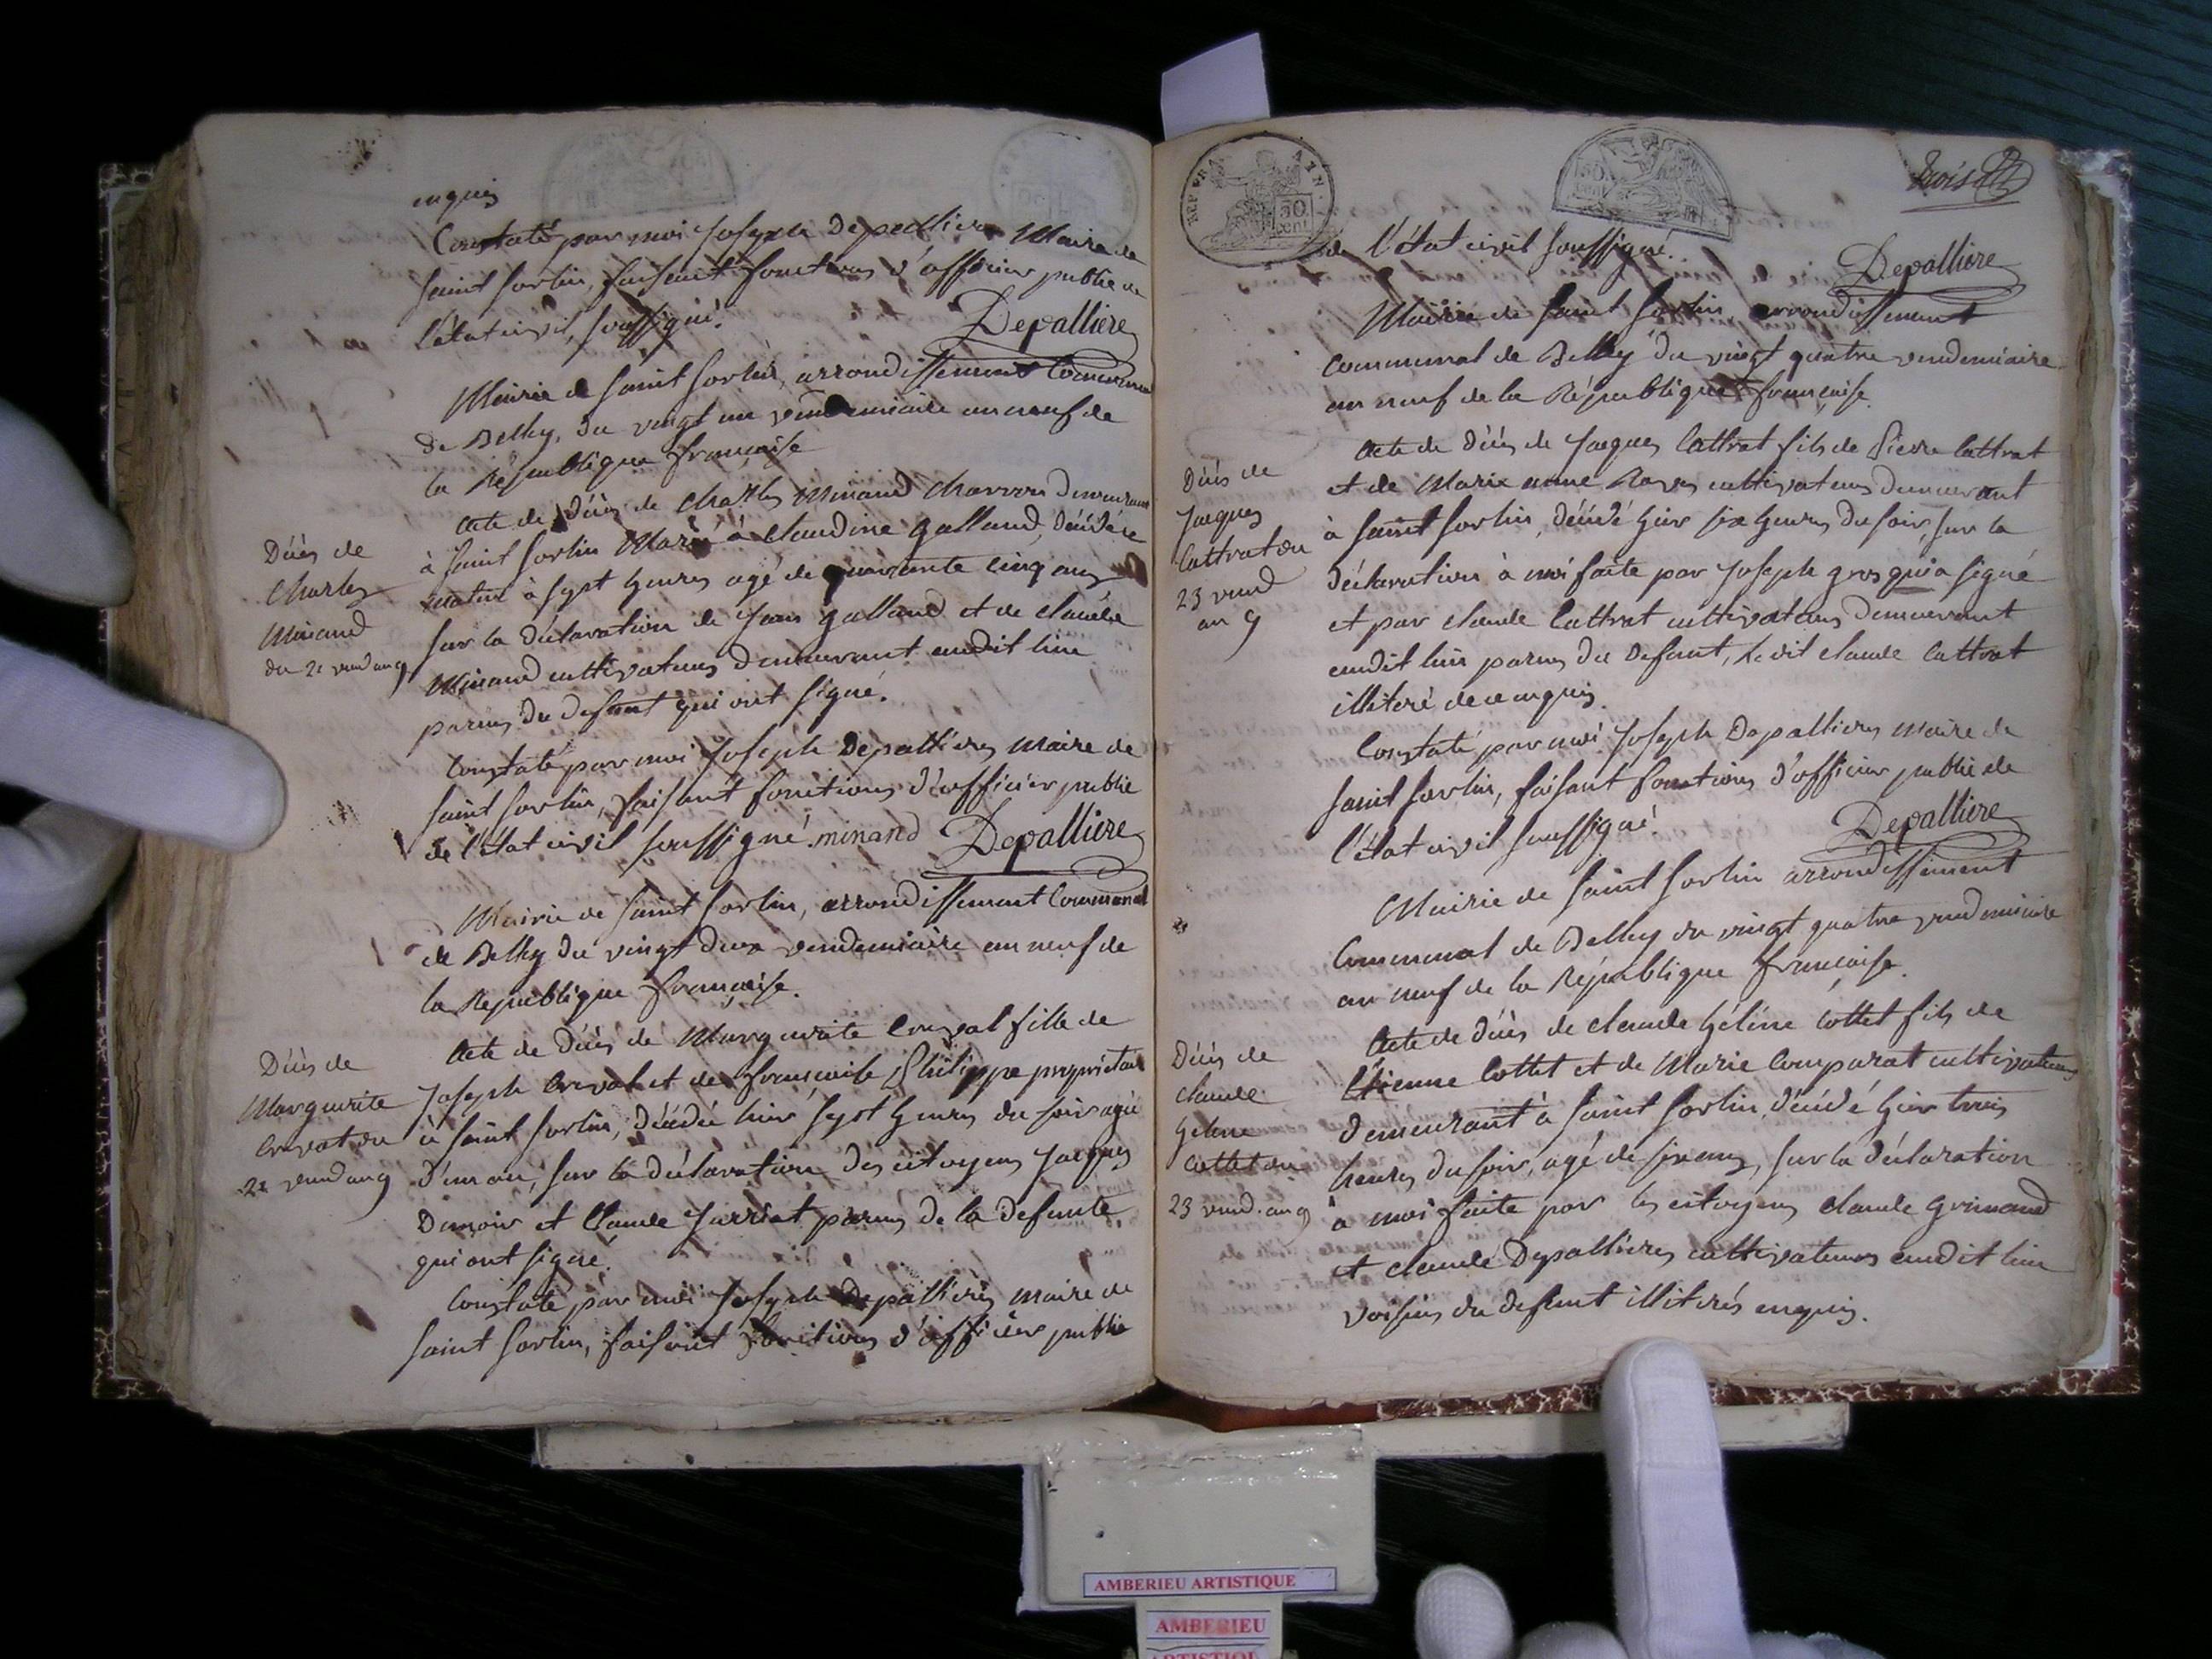 enquis
Constaté par moi Joseph Depallieres Maire de
Saint Sorlin, faisant fonctions d'officier public de
l'état civil, soussigné.
Depalliere
Mairie de Saint Sorlin, arrondissement Communal
de Belley, du vingt un vendemiaire an neuf de
la République française
Acte de Décès de Charles Minand charron demeurant
à Saint Sorlin Marié à Claudine Galland, décédé ce
matin à sept heures agé de quarante cinq ans
sur la déclaration de Jean Galland et de Claude
Minand cultivateurs demeurant audit lieu
parens du defunt qui ont signé.
Constaté par moi Joseph Depallieres Maire de
Saint Sorlin, faisant fonctions d'officier public
de l'état civil soussigné. minand Depalliere
Mairie de Saint Sorlin, arrondissement Communal
de Belley du vingt deux vendemiaire an neuf de
la République française.
Acte de Décès de Marguerite Crevat fille de
Joseph Crevat et de françoise Philippe propriétaire
à Saint Sorlin, décédée hier sept heures du soir agée
d'un an, sur la déclaration des citoyens Jacques
et Claude Jarriat parens de la defunte
qui ont signé.
Constaté par moi Joseph Depallieres maire de
Saint Sorlin, faisant fonctions d'officier public
Décès de
Charles
Minand
du 21 vend an 9
Décès de
Marguerite
Crevat du
21 vend an 9
REP FRA
50
cent
trois
de l'état civil soussigné.
Depalliere
Mairie de Saint Sorlin arrondissement
communal de Belley du vingt quatre vendemiaire
an neuf de la République française.
Acte de Décès de Jacques Cattrat fils de Pierre Cattrat
et de Marie anne cultivateurs demeurant
à Saint Sorlin, décédé hier six heures du soir, sur la
déclaration à moi faite par Joseph gros qui a signé
et par claude Cattrat cultivateurs demeurant
audit lieu parens du defunt, le dit claude Cattrat
illiteré de ce enquis.
Constaté par moi Joseph Depallieres maire de
Saint Sorlin, faisant fonctions d'officier public de
l'état civil soussigné.
Depalliere
Mairie de Saint Sorlin arrondissement
Communal de Belley du vingt quatre vendemiaire
an neuf de la République française.
Acte de Décès de claude hélène Cottet fils de
Etienne Cottet et de Marie Comparat cultivateurs
demeurant à Saint Sorlin, décédé hier trois
heures du soir, agé de six ans, sur la déclaration
à moi faite par les citoyens claude Grimand
et claude Depallieres cultivateurs audit lieu
voisins du defunt illiterés enquis.
Décès de
Jacques
Cattrat du
23 vend
an 9
Décès de
claude
helene
Cottet du
23 vend. an 9
AMBERIEU ARTISTIQUE
AMBERIEU
ARTISTIQUE